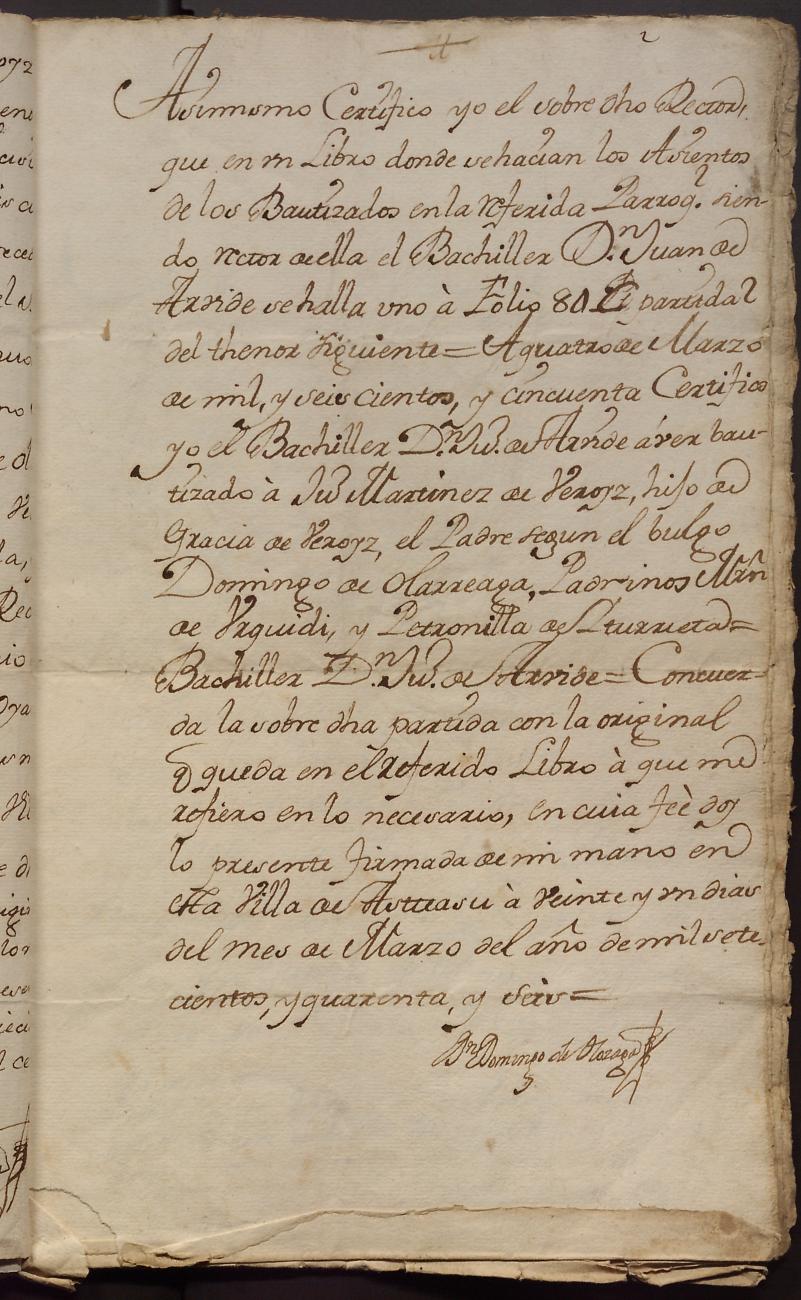 2
Asimismo Certifico yo el sobre dho Rector,
que en vn Libro donde se hacian los Asientos
de los Bautizados en la referida Parroq.ͣ sien-
do rector de ella el Bachiller D.n Juan de
Arvide se halla vno à Folio 80 partida 2
del thenor siguiente = A quatro de Marzo
de mil, y seis cientos, y cincuenta Certifico
yo el Bachiller D.n Ju.º de Arvide áver bau-
tizado à Ju.º Martinez de Veroyz, hijo de
Gracia de Veroyz, el Padre segun el bulgo
Domingo de Olarreaga, Padrinos Mrñ
de Vrquidi, y Petronilla de Yturrieta =
Bachiller D.n Ju.º de Arvide = Concuer-
da la sobre dha partida con la original
q̃ queda en el referido Libro à que me
refiero en lo necesario, en cuia feè doy
lo presente firmada de mi mano en
esta Villa de Astteasu à veinte y vn dias
del mes de Marzo del año de mil sete-
cientos, y quarenta, y seis =
Dn Domingo de Olozaga